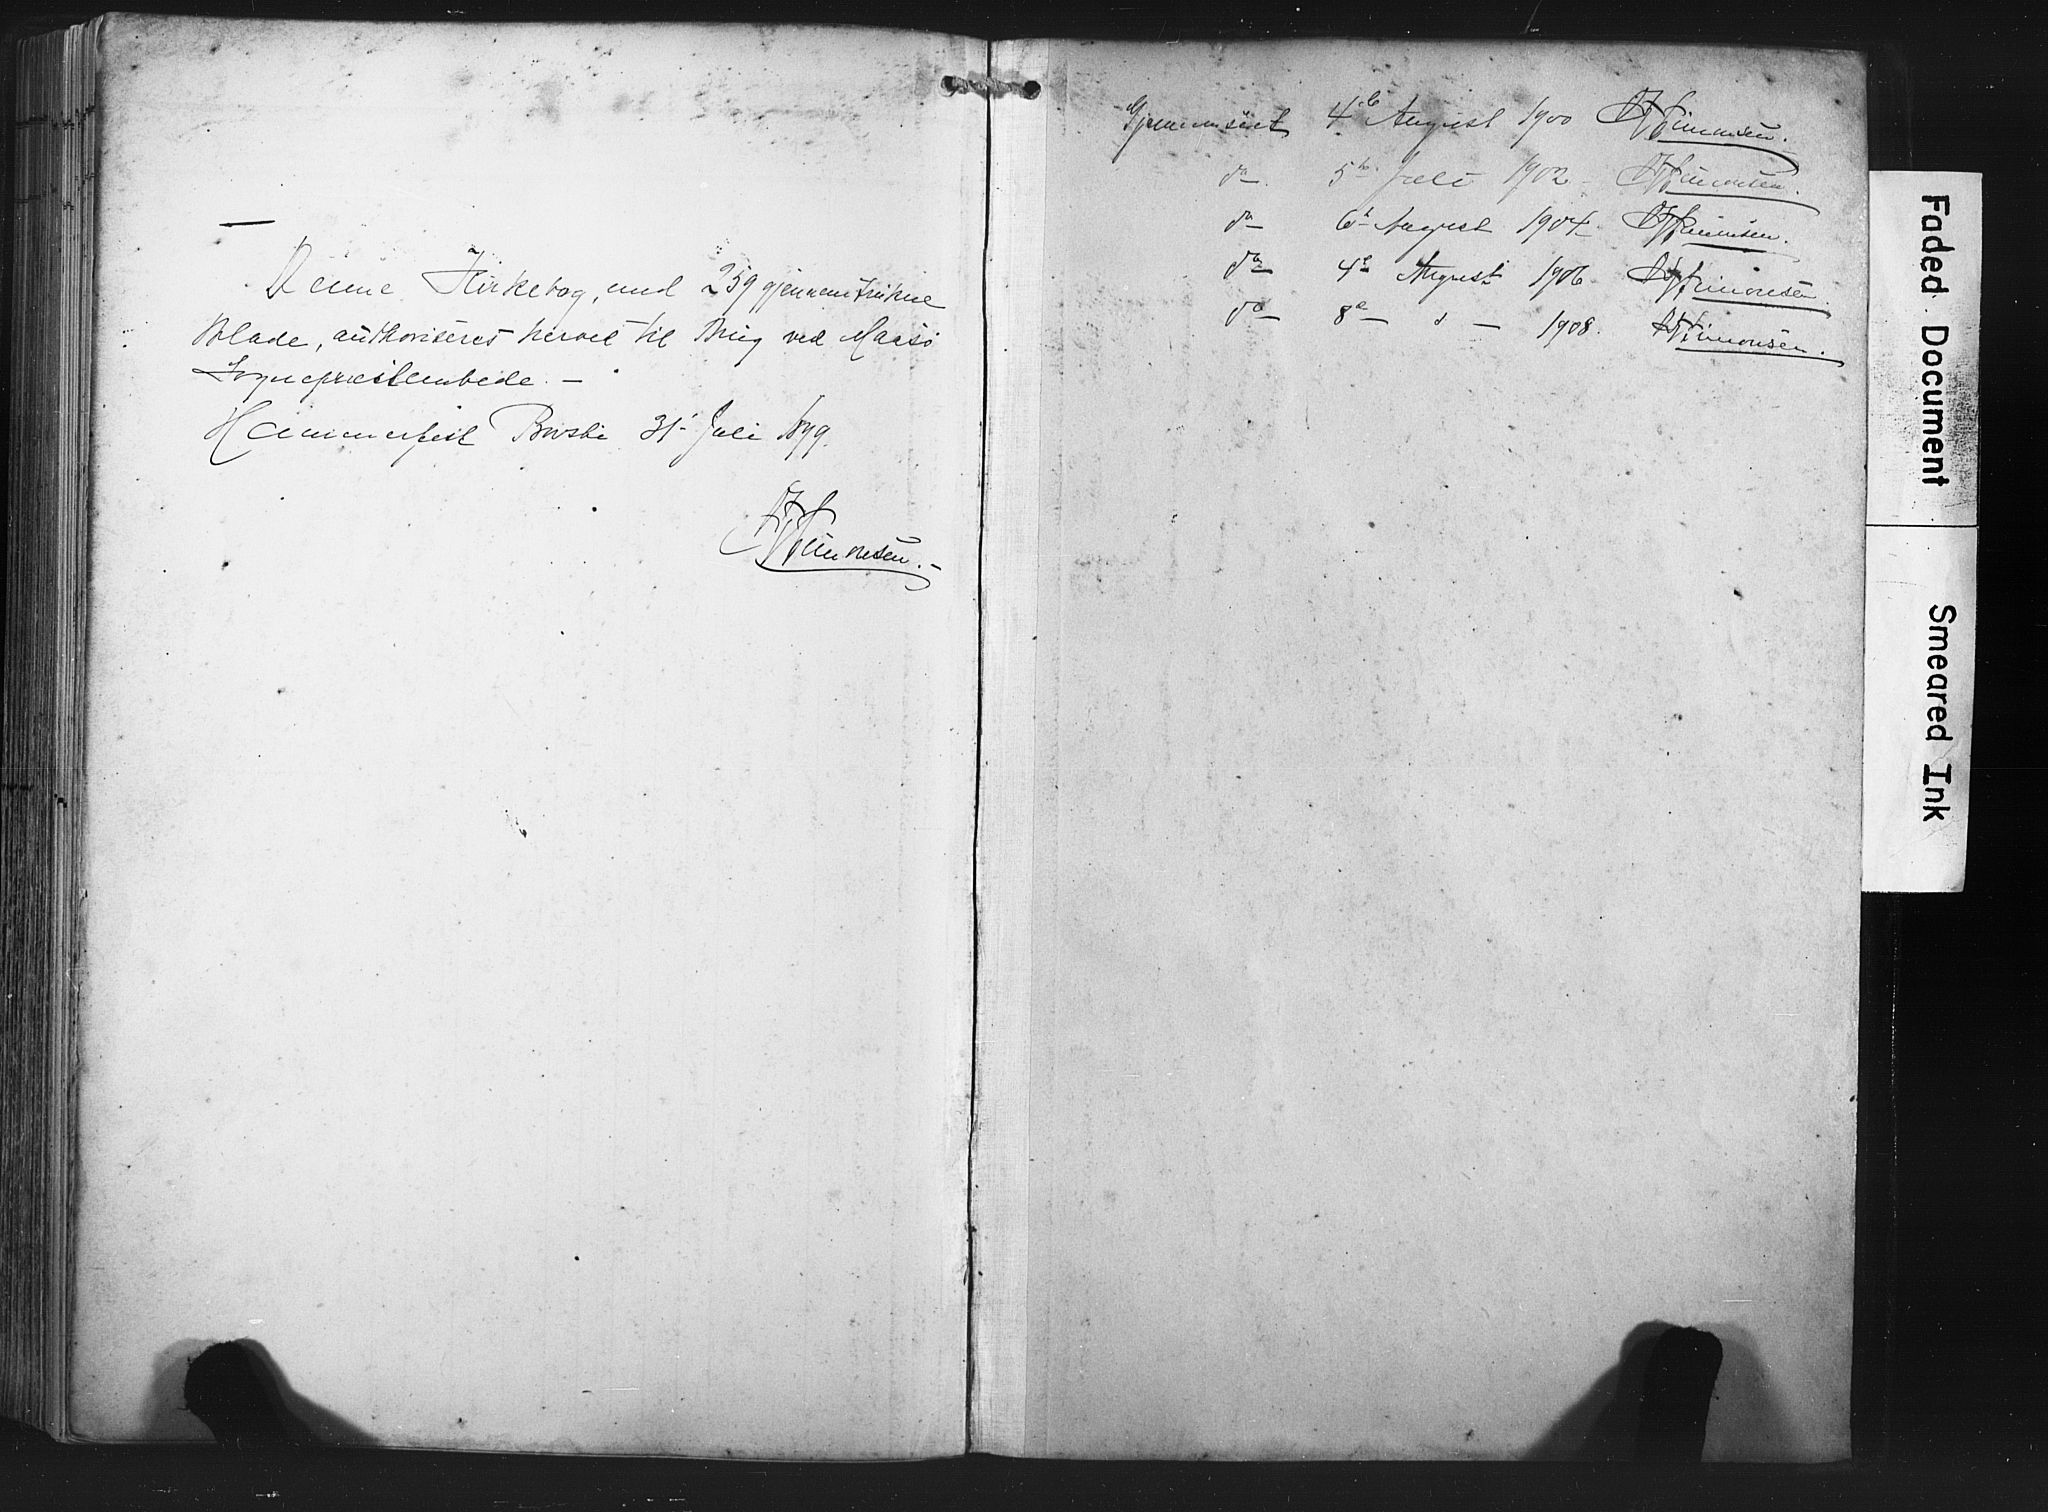 Denne Kirkebog, med 259 gjennemtrukne
Blade, authoriseres herved til Brug ved Maasø
Sognepræstembede. –
Hammerfest Provsti 31 Juli 1899.
Simonsen. –
Gjennemseet 4de August 1900 Simonsen.
do 5te Juli 1902 Simonsen.
do 6te August 1904. Simonsen.
do 4de August 1906 Simonsen.
do 8de – " – 1908. Simonsen.
Faded Document
Smeared Ink